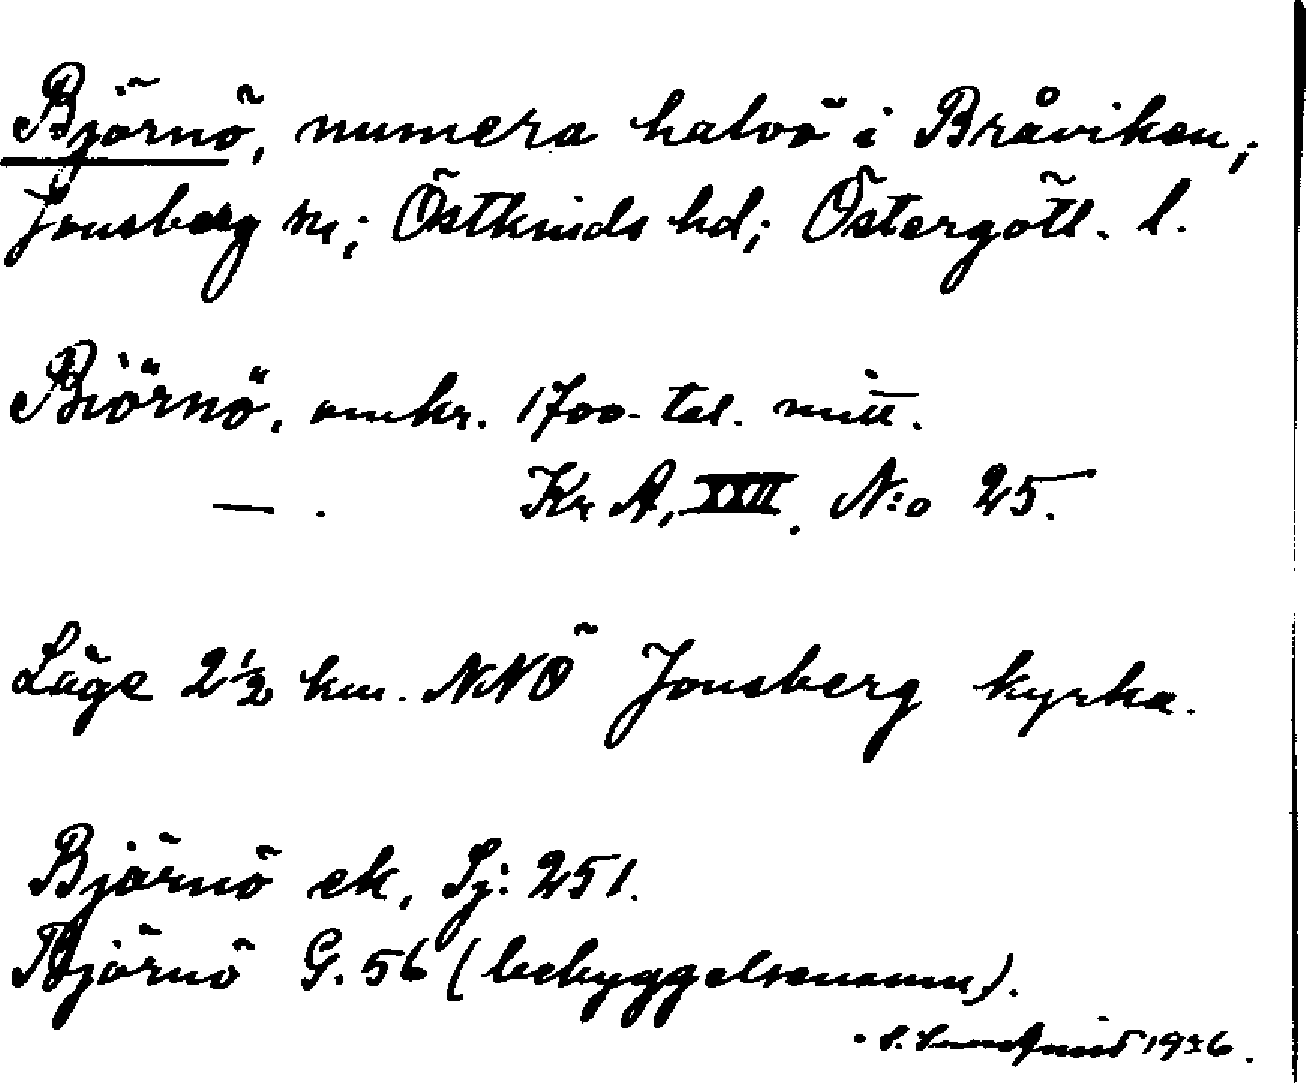 Björnö, numera halvö i Bråviken;
Jonsberg sn; Östkinds hd; Östergötl. l.
Biörnö, omkr. 1700-tal. mitt.
— . Kr A, XXII. N:o 25.
Läge 2½ km. NNÖ Jonsberg kyrka.
Björnö ek, Sj: 251.
Björnö G. 56 (bebyggelsenamn).
1936.